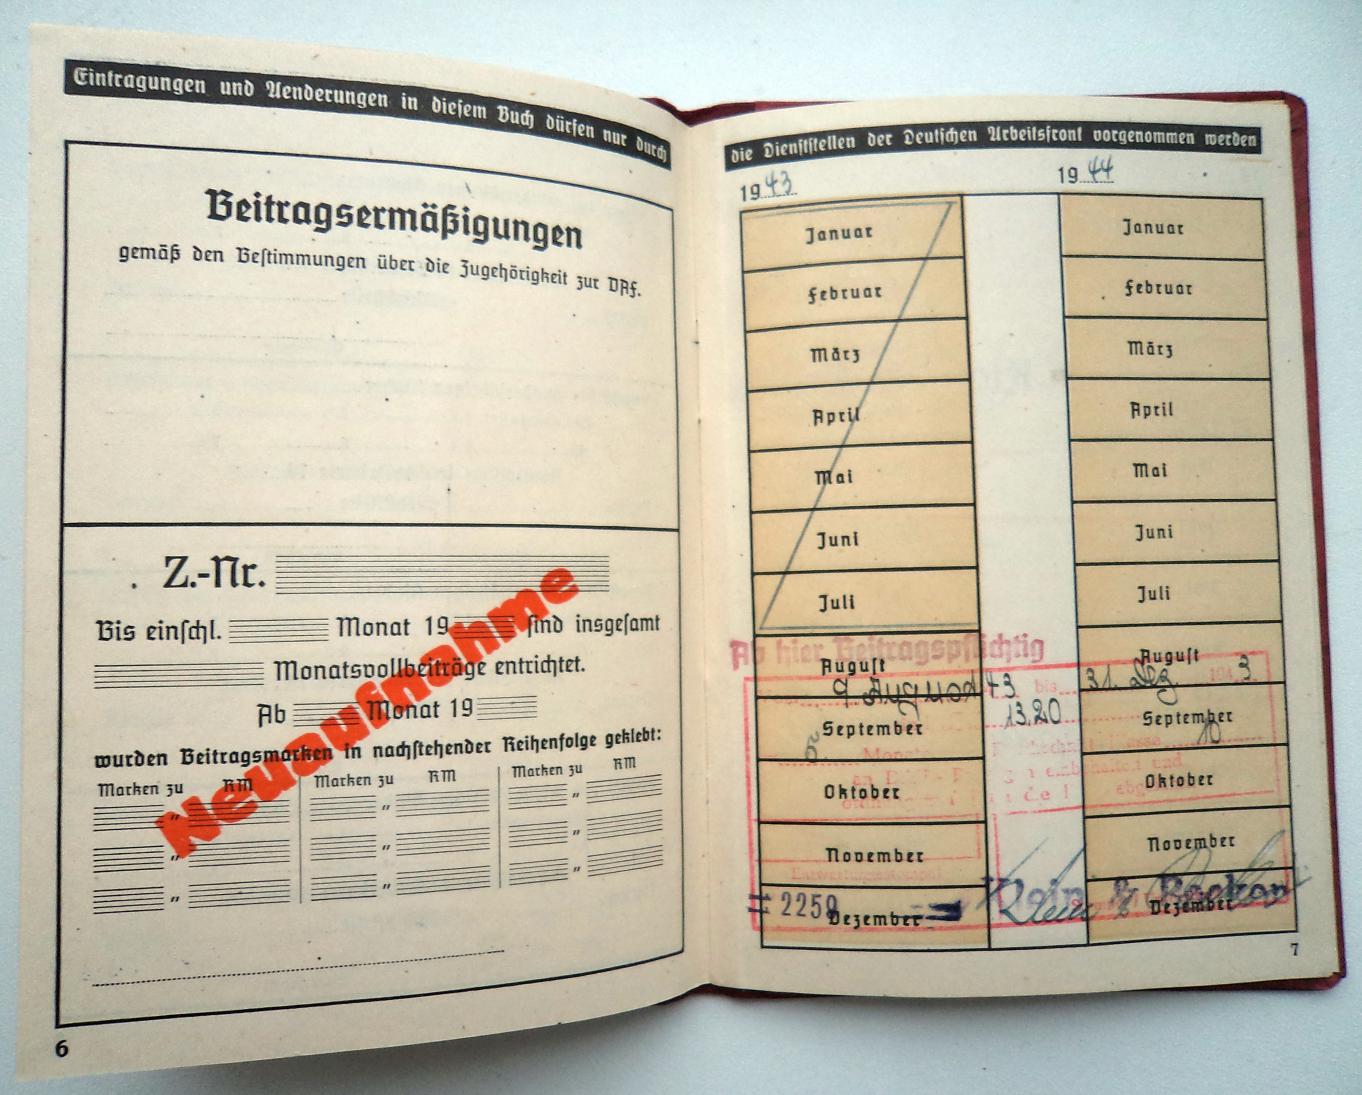 Eintragungen und Aenderungen in diesem Buch dürfen nur durch
Beitragsermäßigungen
gemäß den Bestimmungen über die Zugehörigkeit zur DAF.
Z.-Nr.
Bis einschl. Monat 19 sind insgesamt
Monatsvollbeiträge entrichtet.
Ab Monat 19
wurden Beitragsmarken in nachstehender Reihenfolge geklebt:
Marken zu RM Marken zu RM Marken zu RM
" " "
" " "
" " "
Neuaufnahme
6
die Dienststellen der Deutschen Arbeitsfront vorgenommen werden
1943 1944
Januar Januar
Februar Februar
März März
April April
Mai Mai
Juni Juni
Juli Juli
Ab hier Beitragspflichtig
August August
9 August 43 bis 31. Dez 1943
13.20
September September
5 Monate 10
Oktober Oktober
November November
Entwertungsstempel
= 2259 Klein &
Dezember Dezember
7